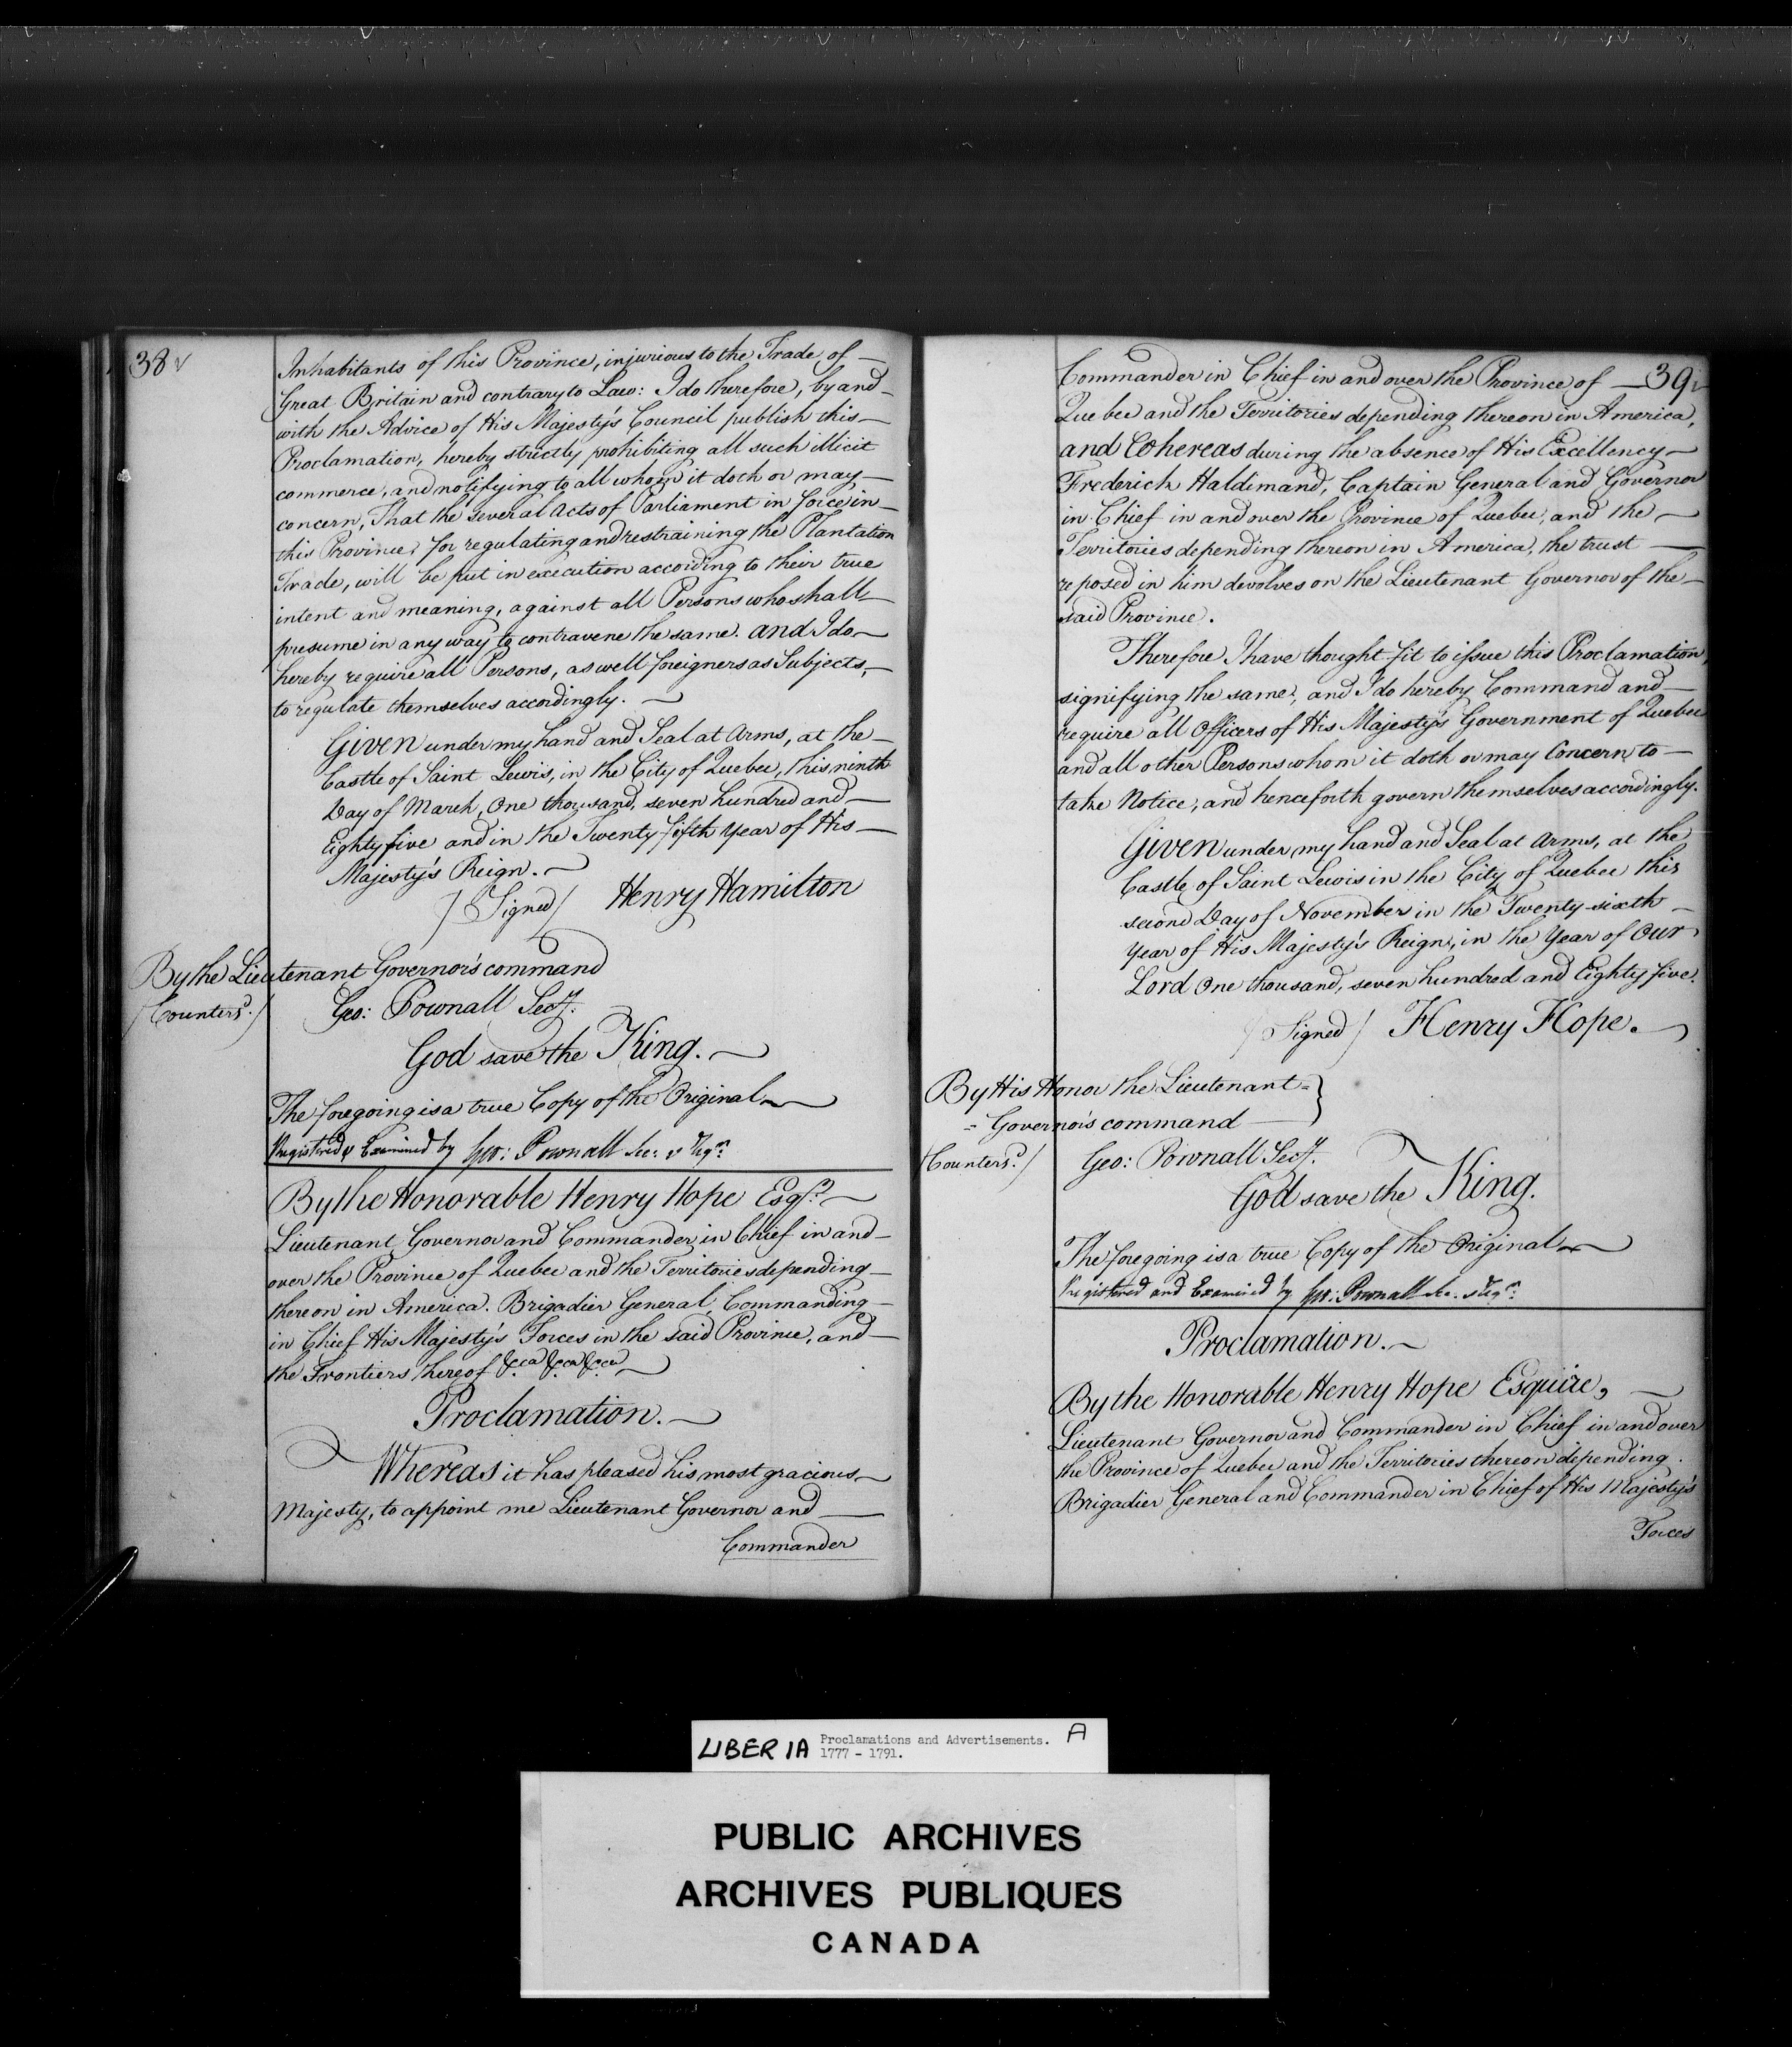 38
Inhabitants of this Province, injurious to the Trade of —
Great Britain and contrary to Law: I do therefore, by and —
with the Advice of His Majesty's Council publish this —
Proclamation, hereby strictly prohibiting all such illicit
commerce, and notifying to all whom it doth or may —
concern, That the several Acts of Parliament in force in —
this Province, for regulating and restraining the Plantation
Trade, will be put in execution according to their true
intent and meaning, against all Persons who shall —
presume in any way to contravene the same. and I do —
hereby require all Persons, as well foreigners as Subjects, —
to regulate themselves accordingly. —
Given under my hand and Seal at Arms, at the —
Castle of Saint Lewis, in the City of Quebec, this ninth
Day of March, One thousand, seven hundred and —
Eighty five and in the Twenty fifth Year of His —
Majesty's Reign. —
/Signed/ Henry Hamilton
By the Lieutenant Governor's command
/Countersd./ Geo: Pownall Secy.
God save the King. —
The foregoing is a true Copy of the Original —
Registered & Examined by Geo: Pownall Sec: & Regr.
By the Honorable Henry Hope Esqr. —
Lieutenant Governor and Commander in Chief in and —
over the Province of Quebec and the Territories depending —
thereon in America. Brigadier General, Commanding —
in Chief His Majesty's Forces in the said Province, and —
the Frontiers thereof &ca &ca &ca —
Proclamation. —
Whereas it has pleased his most gracious —
Majesty, to appoint me Lieutenant Governor and —
Commander
Commander in Chief in and over the Province of — 39
Quebec and the Territories depending thereon in America,
and Whereas during the absence of His Excellency —
Frederick Haldimand, Captain General and Governor
in Chief in and over the Province of Quebec, and the —
Territories depending thereon in America, the trust —
reposed in him devolves on the Lieutenant Governor of the —
said Province.
Therefore I have thought fit to issue this Proclamation,
signifying the same, and I do hereby Command and —
require all Officers of His Majesty's Government of Quebec
and all other Persons whom it doth or may Concern, to —
take Notice, and henceforth govern themselves accordingly.
Given under my hand and Seal at Arms, at the
Castle of Saint Lewis in the City of Quebec this
second Day of November in the Twenty-sixth —
Year of His Majesty's Reign, in the Year of Our
Lord One thousand, seven hundred and Eighty five.
/Signed/ Henry Hope. —
By His Honor the Lieutenant =
= Governor's command —
/Countersd./ Geo: Pownall Secy.
God save the King.
The foregoing is a true Copy of the Original —
Registered and Examined by Geo: Pownall Sec. & Regr.
Proclamation. —
By the Honorable Henry Hope Esquire, —
Lieutenant Governor and Commander in Chief in and over
the Province of Quebec and the Territories thereon depending.
Brigadier General and Commander in Chief of His Majesty's
Forces
LIBER IA Proclamations and Advertisements. A
1777 - 1791.
PUBLIC ARCHIVES
ARCHIVES PUBLIQUES
CANADA